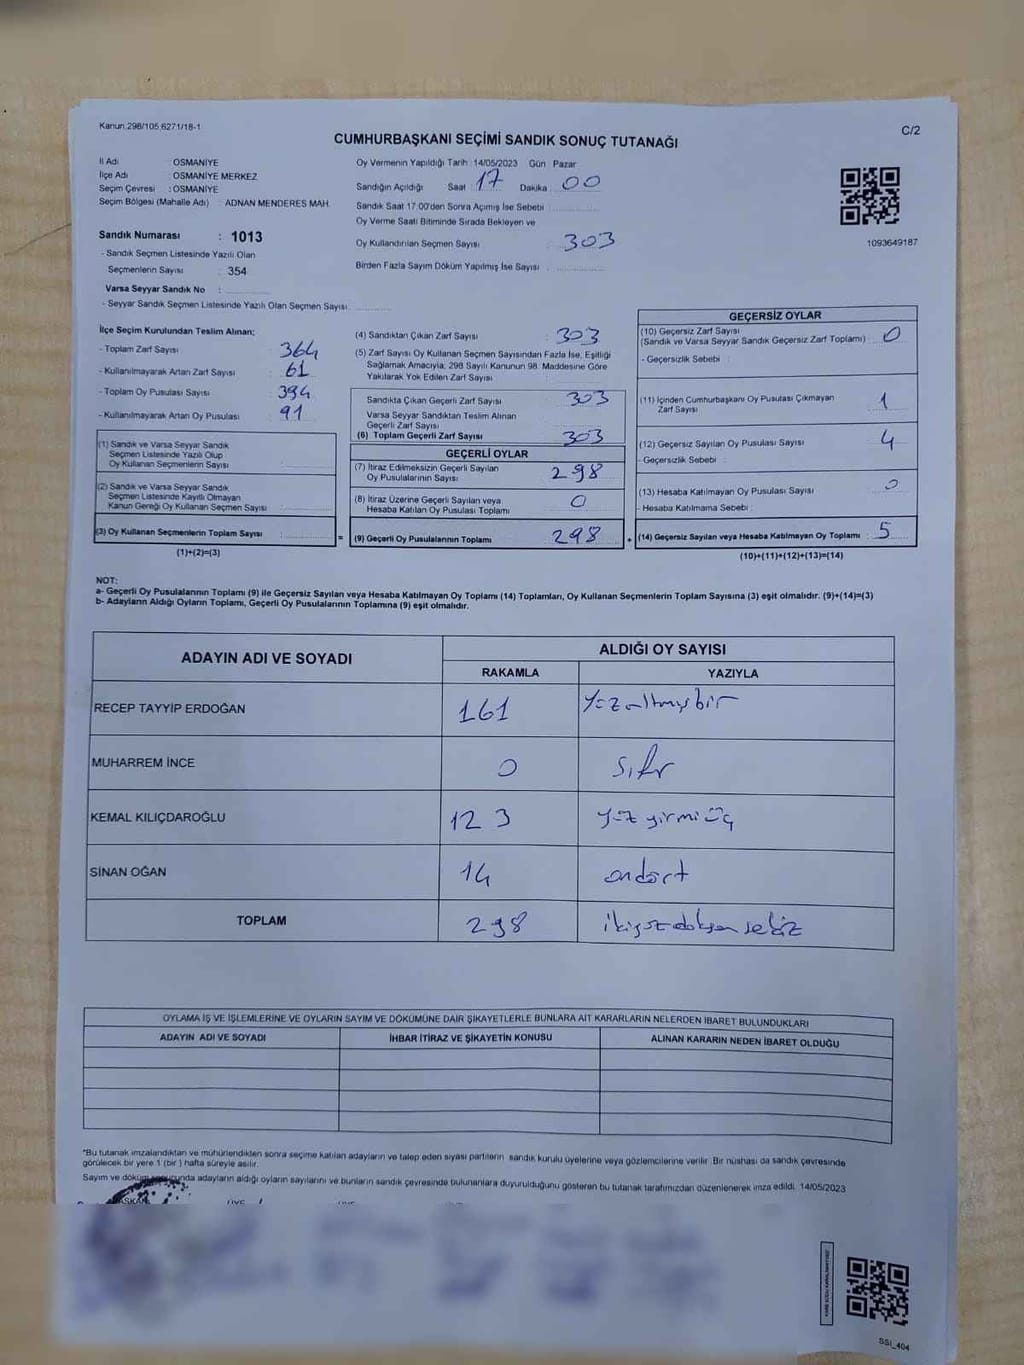 Kanun 298/105 6271/18-1
C/2
CUMHURBAŞKANI SEÇİMİ SANDIK SONUÇ TUTANAĞI
İl Adı : OSMANİYE
İlçe Adı : OSMANİYE MERKEZ
Seçim Çevresi : OSMANİYE
Seçim Bölgesi (Mahalle Adı) : ADNAN MENDERES MAH.
Sandık Numarası : 1013
- Sandık Seçmen Listesinde Yazılı Olan
Seçmenlerin Sayısı : 354
Varsa Seyyar Sandık No :
- Seyyar Sandık Seçmen Listesinde Yazılı Olan Seçmen Sayısı
Oy Vermenin Yapıldığı Tarih : 14/05/2023 Gün Pazar
Sandığın Açıldığı Saat : 17 Dakika : 00
Sandık Saat 17:00'den Sonra Açımış İse Sebebi :
Oy Verme Saati Bitiminde Sırada Bekleyen ve
Oy Kullandırılan Seçmen Sayısı : 303
Birden Fazla Sayım Döküm Yapılmış İse Sayısı :
1093649187
İlçe Seçim Kurulundan Teslim Alınan;
- Toplam Zarf Sayısı : 364
- Kullanılmayarak Artan Zarf Sayısı : 61
- Toplam Oy Pusulası Sayısı : 394
- Kullanılmayarak Artan Oy Pusulası : 91
(1) Sandık ve Varsa Seyyar Sandık
Seçmen Listesinde Yazılı Olup
Oy Kullanan Seçmenlerin Sayısı :
(2) Sandık ve Varsa Seyyar Sandık
Seçmen Listesinde Kayıtlı Olmayan
Kanun Gereği Oy Kullanan Seçmen Sayısı :
(3) Oy Kullanan Seçmenlerin Toplam Sayısı :
(1)+(2)=(3)
(4) Sandıktan Çıkan Zarf Sayısı : 303
(5) Zarf Sayısı Oy Kullanan Seçmen Sayısından Fazla İse, Eşitliği
Sağlamak Amacıyla; 298 Sayılı Kanunun 98. Maddesine Göre
Yakılarak Yok Edilen Zarf Sayısı :
Sandıkta Çıkan Geçerli Zarf Sayısı : 303
Varsa Seyyar Sandıktan Teslim Alınan
Geçerli Zarf Sayısı :
(6) Toplam Geçerli Zarf Sayısı : 303
GEÇERLİ OYLAR
(7) İtiraz Edilmeksizin Geçerli Sayılan
Oy Pusulalarının Sayısı : 298
(8) İtiraz Üzerine Geçerli Sayılan veya
Hesaba Katılan Oy Pusulası Toplamı : 0
= (9) Geçerli Oy Pusulalarının Toplamı : 298
GEÇERSİZ OYLAR
(10) Geçersiz Zarf Sayısı
(Sandık ve Varsa Seyyar Sandık Geçersiz Zarf Toplamı) : 0
- Geçersizlik Sebebi :
(11) İçinden Cumhurbaşkanı Oy Pusulası Çıkmayan
Zarf Sayısı : 1
(12) Geçersiz Sayılan Oy Pusulası Sayısı : 4
- Geçersizlik Sebebi :
(13) Hesaba Katılmayan Oy Pusulası Sayısı : 0
- Hesaba Katılmama Sebebi :
+ (14) Geçersiz Sayılan veya Hesaba Katılmayan Oy Toplamı : 5
(10)+(11)+(12)+(13)=(14)
NOT:
a- Geçerli Oy Pusulalarının Toplamı (9) ile Geçersiz Sayılan veya Hesaba Katılmayan Oy Toplamı (14) Toplamları, Oy Kullanan Seçmenlerin Toplam Sayısına (3) eşit olmalıdır. (9)+(14)=(3)
b- Adayların Aldığı Oyların Toplamı, Geçerli Oy Pusulalarının Toplamına (9) eşit olmalıdır.
ADAYIN ADI VE SOYADI ALDIĞI OY SAYISI
RAKAMLA YAZIYLA
RECEP TAYYİP ERDOĞAN 161 yüzaltmışbir
MUHARREM İNCE 0 sıfır
KEMAL KILIÇDAROĞLU 123 yüz yirmi üç
SİNAN OĞAN 14 ondört
TOPLAM 298 ikiyüz doksan sekiz
OYLAMA İŞ VE İŞLEMLERİNE VE OYLARIN SAYIM VE DÖKÜMÜNE DAİR ŞİKAYETLERLE BUNLARA AİT KARARLARIN NELERDEN İBARET BULUNDUKLARI
ADAYIN ADI VE SOYADI İHBAR İTİRAZ VE ŞİKAYETİN KONUSU ALINAN KARARIN NEDEN İBARET OLDUĞU
*Bu tutanak imzalandıktan ve mühürlendikten sonra seçime katılan adayların ve talep eden siyasi partilerin sandık kurulu üyelerine veya gözlemcilerine verilir. Bir nüshası da sandık çevresinde
görülecek bir yere 1 (bir) hafta süreyle asılır.
Sayım ve döküm sonucunda adayların aldığı oyların sayılarını ve bunların sandık çevresinde bulunanlara duyurulduğunu gösteren bu tutanak tarafımızdan düzenlenerek imza edildi. 14/05/2023
SSI_404